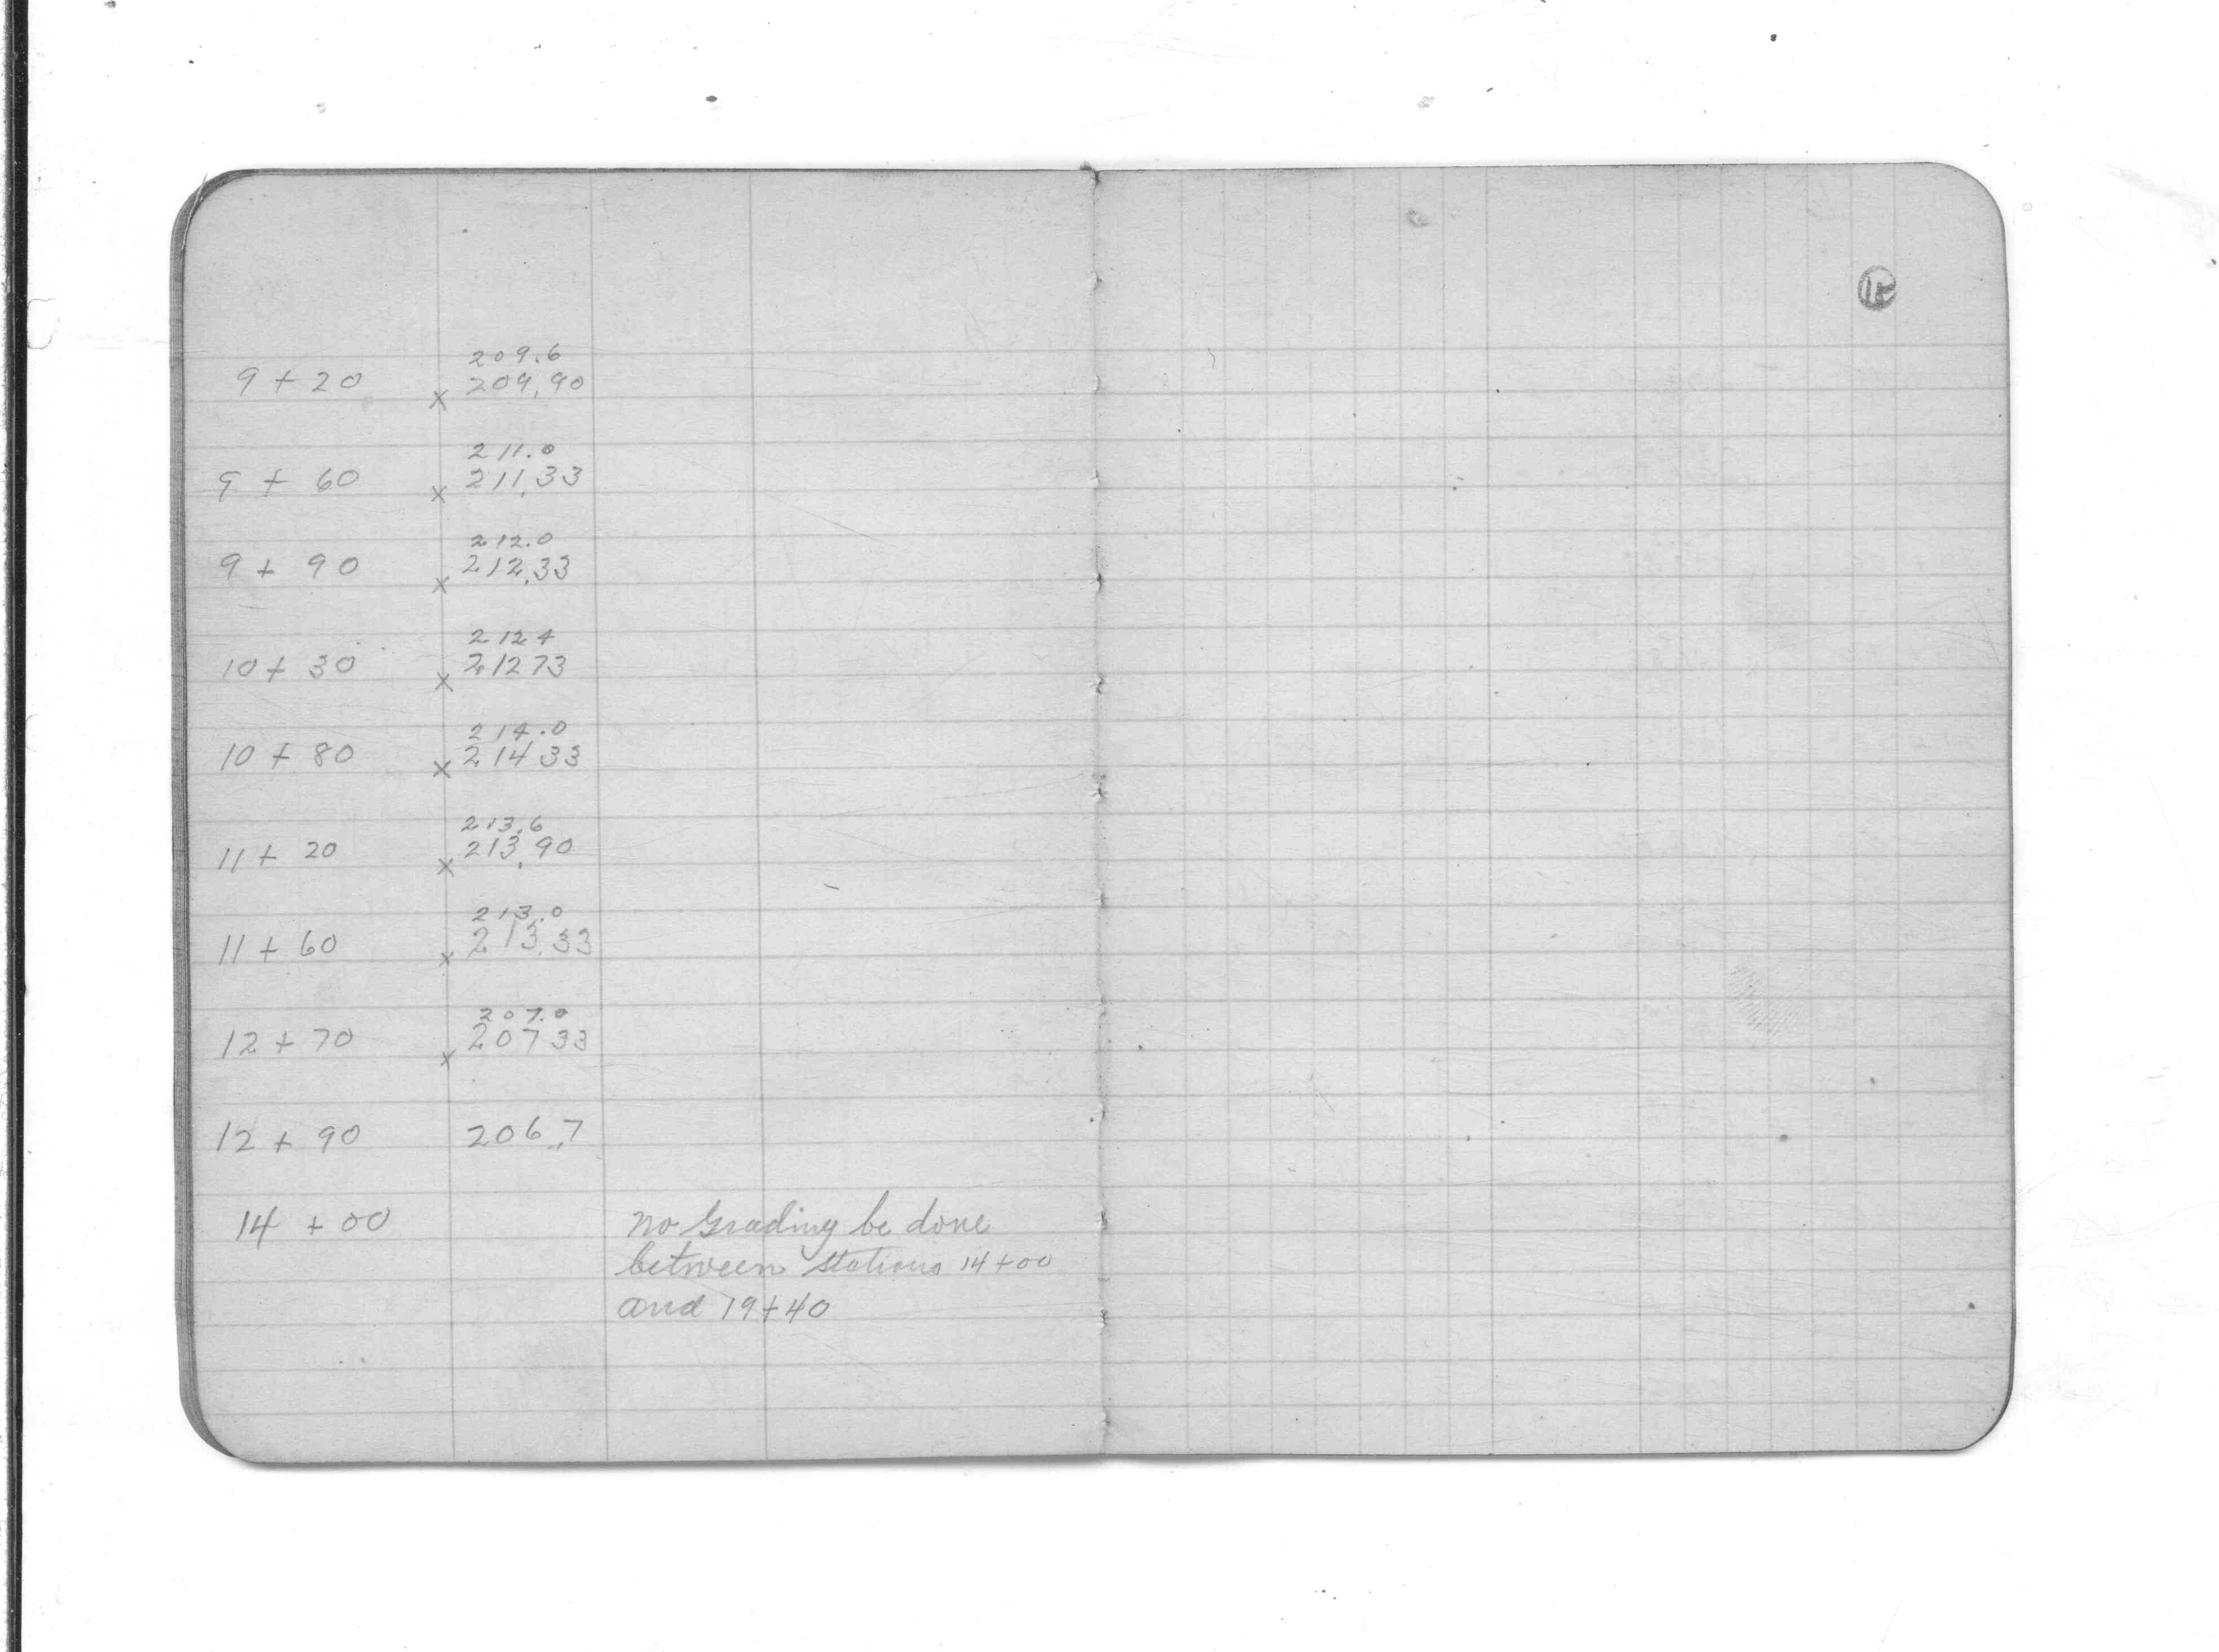 209.6
9 + 20 x 209.90
211.0
9 + 60 x 211.33
212.0
9 + 90 x 212.33
212 4
10 + 30 x 212 73
214.0
10 + 80 x 214 33
213.6
11 + 20 x 213.90
213.0
11 + 60 x 213.33
207.0
12 + 70 x 207 33
12 + 90 206.7
14 + 00 no Grading be done
between stations 14+00
and 19+40